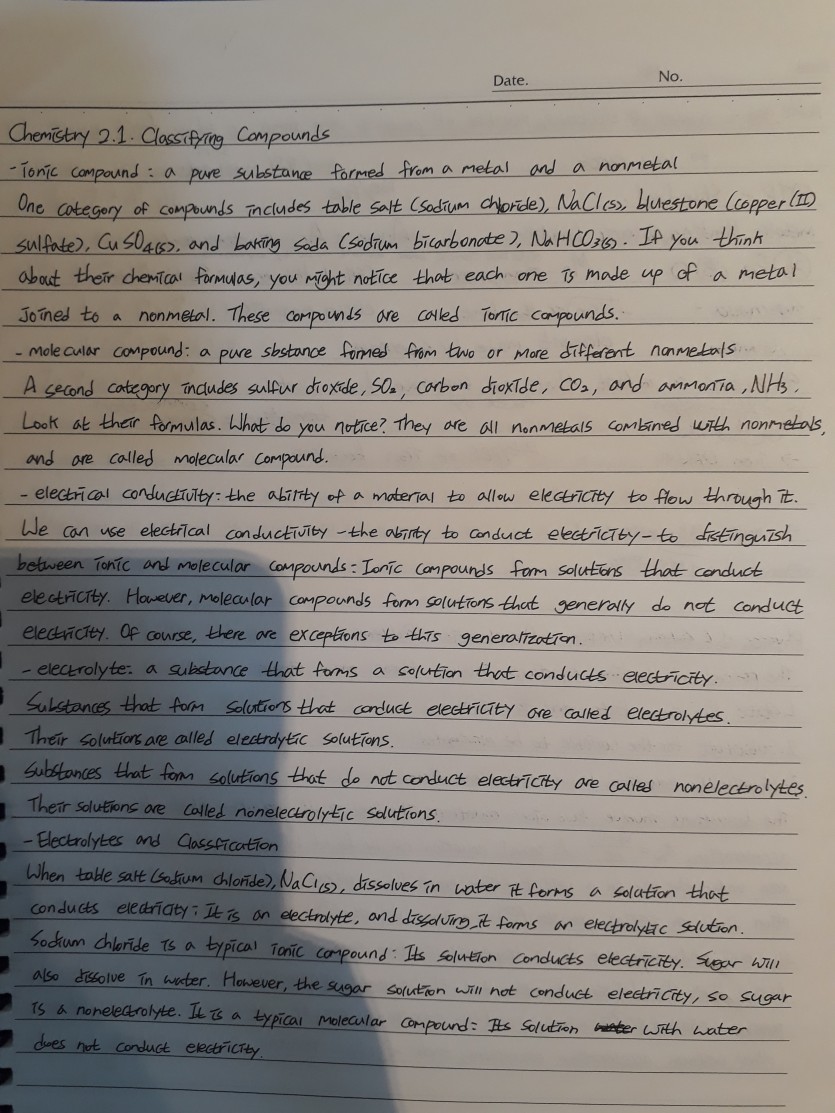 Date.
No.
Chemistry 2.1. Classifying Compounds
- Ionic compound : a pure substance formed from a metal and a nonmetal
One category of compounds includes table salt (sodium chloride), NaCl(s), bluestone (copper (II)
sulfate), CuSO4(s), and baking soda (sodium bicarbonate), NaHCO3(s). If you think
about their chemical formulas, you might notice that each one is made up of a metal
Joined to a nonmetal. These compounds are called ionic compounds.
- molecular compound: a pure sbstance formed from two or more different nonmetals
A second category includes sulfur dioxide, SO2, carbon dioxide, CO2, and ammonia, NH3.
Look at their formulas. What do you notice? They are all nonmetals combined with nonmetals,
and are called molecular compound.
- electrical conductivity: the ability of a material to allow electricity to flow through it.
We can use electrical conductivity - the ability to conduct electricity - to distinguish
between ionic and molecular compounds: Ionic compounds form solutions that conduct
electricity. However, molecular compounds form solutions that generally do not conduct
electricity. Of course, there are exceptions to this generalization.
- electrolyte: a substance that forms a solution that conducts electricity.
Substances that form solutions that conduct electricity are called electrolytes.
Their solutions are called electrolytic solutions.
Substances that form solutions that do not conduct electricity are called nonelectrolytes.
Their solutions are called nonelectrolytic solutions.
- Electrolytes and Classfication
When table salt (sodium chloride), NaCl(s), dissolves in water it forms a solution that
conducts electricity; It is an electrolyte, and dissolving it forms an electrolytic solution.
Sodium chloride is a typical ionic compound: Its solution conducts electricity. Sugar will
also dissolve in water. However, the sugar solution will not conduct electricity, so sugar
is a nonelectrolyte. It is a typical molecular compound: Its solution water with water
does not conduct electricity.